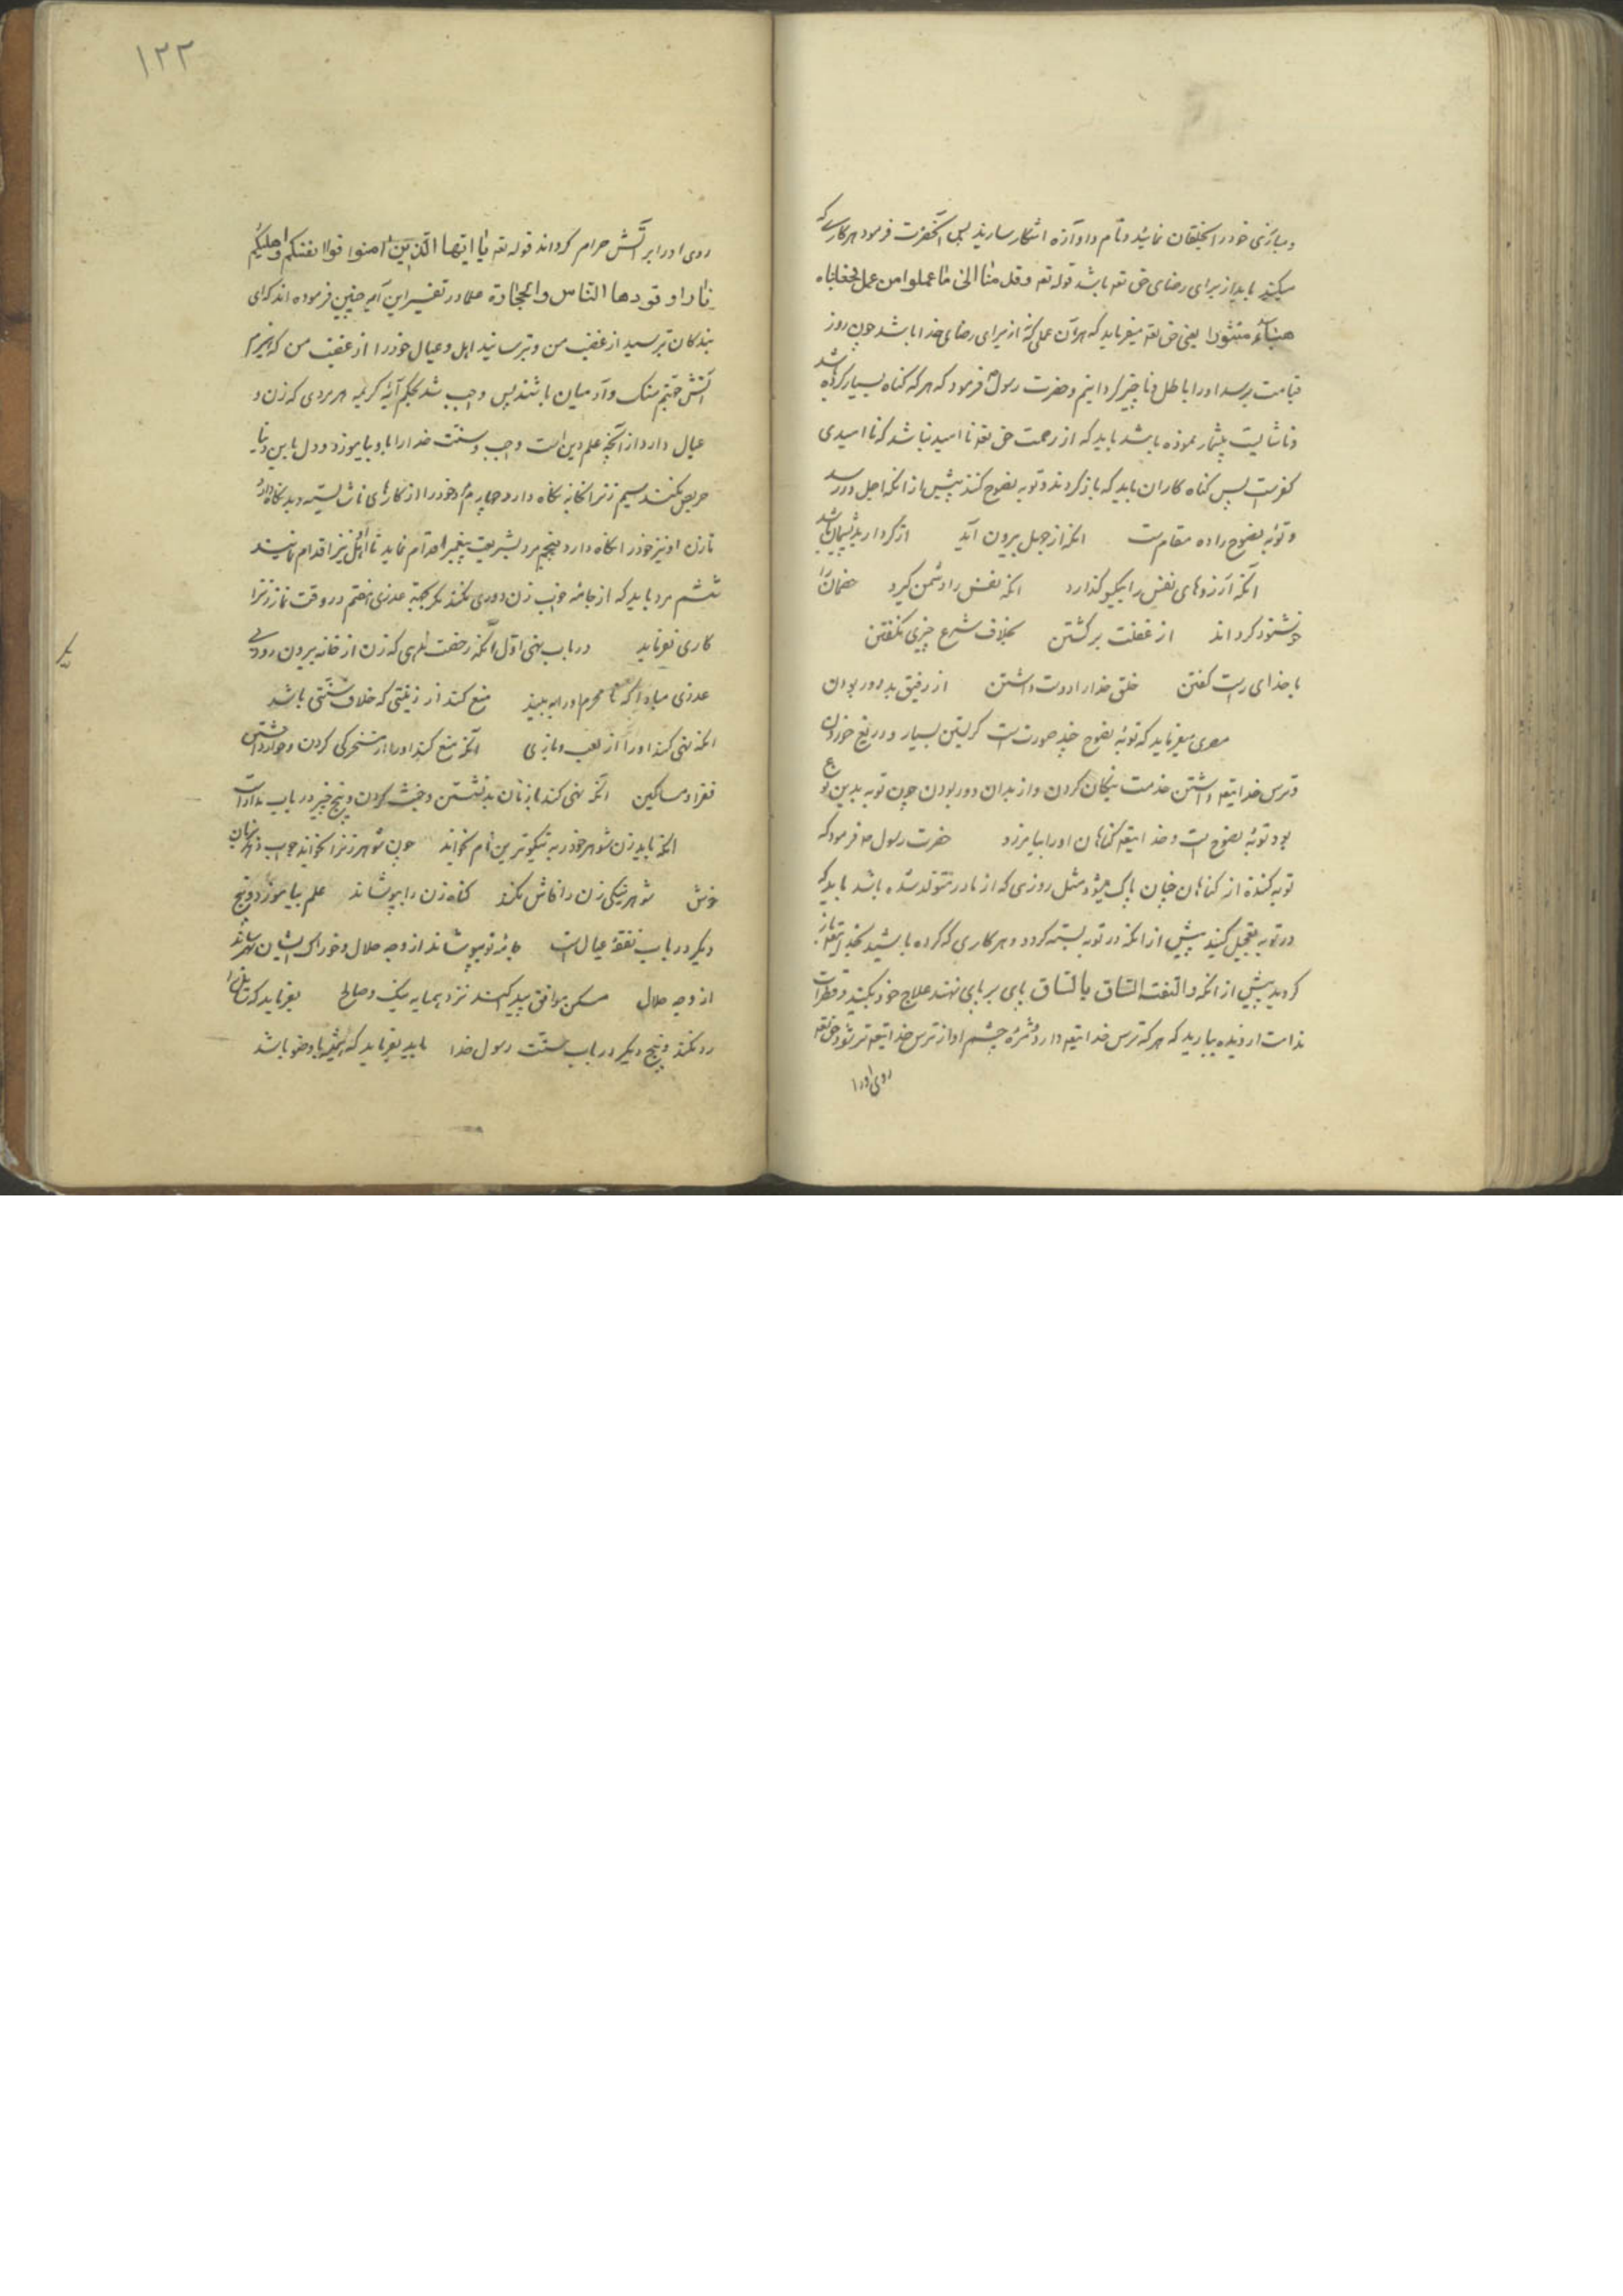 و مبارزی خود را بخلقان نمایند و نام و آوازه اشکار سازند پس آنحضرت فرمود هر کاری که
میکنند باید از برای رضای حق تعه باشد قوله تعه و قدمنا الی ما عملوا من عمل فجعلناه
هبآء منثورا یعنی حق تعه میفرماید که هر آن عملی که نه از برای رضای خدا باشد چون روز
قیامت برسد او را باطل و ناچیز گردانیم و حضرت رسول فرمود که هر که گناه بسیار کرده باشد
و ناشایست بیشمار نموده باشد باید که از رحمت حق تعه نا امید نباشد که نا امیدی
کفرست پس گناه کاران باید که باز گردند و توبه نصوح کنند پیش از آنکه اجل در رسد
و توبه نصوح را ده مقامست انکه از جهل بیرون آید از کردار بد پشیمان باشد
آنکه آرزوهای نفس را یکسو گذارد انکه نفس را دشمن گیرد خصمان را
خوشنود گرداند از غفلت برگشتن بخلاف شرع چیزی نگفتن
با خدای راست گفتن خلق خدا را دوست داشتن از رفیق بد دور بودن
مصری میفرماید که توبه نصوح چند صورتست گریستن بسیار و دریغ خوردن
و ترس خدایتعه داشتن خدمت نیکان کردن و از بدان دور بودن چون توبه بدین نوع
بود توبه نصوح است و خدایتعه گناهان او را بیامرزد حضرت رسول ص فرمود که
توبه کننده از گناهان چنان پاک میشود مثل روزی که از مادر متولد شده باشد باید که
در توبه تعجیل کنید پیش از انکه در توبه بسته گردد و هر کاری که کرده باشید بخدایتعه باز
گردید پیش از انکه و التفت الساق بالساق پای بر پای نهند علاج خود بکنید و قطرات
ندامت از دیده ببارید که هر که ترس خدایتعه دارد و مژه چشم او از ترس خدایتعه تر شود حق تعه
روی او را
۱۲۲
روی او را بر آتش حرام گرداند قوله تعه یا ایها الذین امنوا قوا انفسکم و اهلیکم
نارا و قودها الناس و الحجارة علما در تفسیر این آیه چنین فرموده اند که ای
بندکان بترسید از غضب من و بترسانید اهل و عیال خود را از غضب من که هیزم
آتش جهنم سنک و آدمیان باشند پس واجب شد بحکم آیه کریمه هر مردی که زن و
عیال دارد از آنچه علم دین است واجب و سنت خدا را باو بیاموزد و دل باین دنیا
حریص نکنند سیم زنرا بخانه نگاه دارد چهارم خود را از کارهای ناشایسته و بد نگاه دارد
تا زن او نیز خود را نگاه دارد پنجم مرد بشریعت پیغمبر اقدام نماید تا اهل نیز اقدام نمایند
ششم مرد باید که از جامه خواب زن دوری نکند مگر بجهة عذری هفتم در وقت نماز زنرا
کاری نفرماید در باب نهی اوّل آنکه رخصت ندهی که زن از خانه بیرون رود بی
عذری مبادا که نا محرم او را به بیند منع کند از زینتی که خلاف سنتی باشد
انکه نهی کند او را از لعب و بازی آنکه منع کند او را از مسخرکی کردن و خوار داشتن
فقرا و مساکین انکه نهی کند با زنان بد نشستن و غیبت کردن و پنج چیز در باب مداراست
انکه باید زن شوهر خود را به نیکوترین نام خواند چون شوهر زنرا بخواند جواب دهد بزبان
خوش شوهر نیکی زن را فاش نکند گناه زن را بپوشاند علم بیاموزد و پنج
دیگر در باب نفقه عیال است جامه نو بپوشاند از وجه حلال و خوراک ایشان بهم رساند
از وجه حلال مسکن موافق پیدا کند نزد همسایه نیک و صالح بفرماید که سایل را
رد نکند و پنج دیگر در باب سنت رسول خدا باید بفرماید که همیشه با وضو باشد